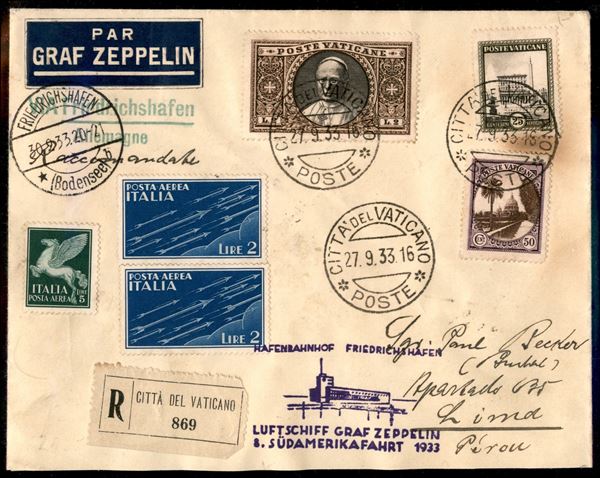 PAR
GRAF ZEPPELIN
Friedrichshafen
Allemagne
FRIEDRICHSHAFEN
(Bodensee)
Raccomandate
POSTE VATICANE
L. 2 L. 2
POSTE VATICANE
25
CITTÀ DEL VATICANO
27.9.33.16
POSTE
CITTÀ DEL VATICANO
27.9.33.16
POSTE
POSTE VATICANE
50
POSTA AEREA
ITALIA
LIRE 2
POSTA AEREA
ITALIA
LIRE 2
ITALIA
POSTA-AEREA
LIRE 5
CITTÀ DEL VATICANO
27.9.33.16
POSTE
Sgr. Paul Becker
Apartado 635
Lima
Pérou
HAFENBAHNHOF FRIEDRICHSHAFEN
LUFTSCHIFF GRAF ZEPPELIN
8. SÜDAMERIKAFAHRT 1933
R CITTÀ DEL VATICANO
869